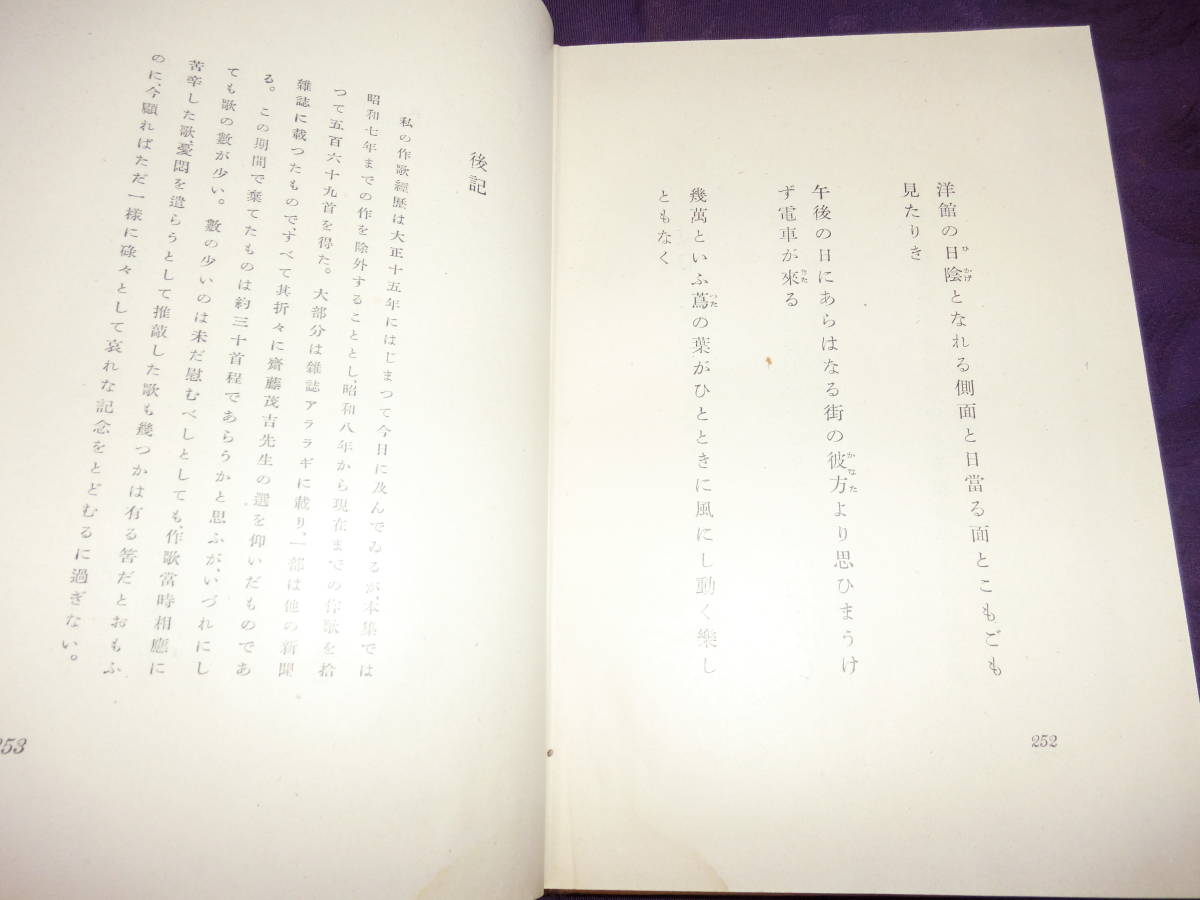 洋館の日陰となれる側面と日當る面とこもごも
見たりき
午後の日にあらはなる街の彼方より思ひまうけ
ず電車が來る
幾萬といふ蔦の葉がひとときに風にし動く樂し
ともなく
252
後記
私の作歌經歴は大正十五年にはじまつて今日に及んでゐるが、本集では
昭和七年までの作を除外することとし、昭和八年から現在までの作歌を拾
つて五百六十九首を得た。大部分は雜誌アララギに載り、一部は他の新聞
雜誌に載つたもので、すべて其折々に齋藤茂吉先生の選を仰いだものであ
る。この期間で棄てたものは約三十首程であらうかと思ふが、いづれにし
ても歌の數が少い。數の少いのは未だ慰むべしとしても、作歌當時相應に
苦辛した歌、憂悶を遣らうとして推敲した歌も幾つかは有る筈だとおもふ
のに、今顧ればただ一樣に碌々として哀れな記念をとどむるに過ぎない。
253